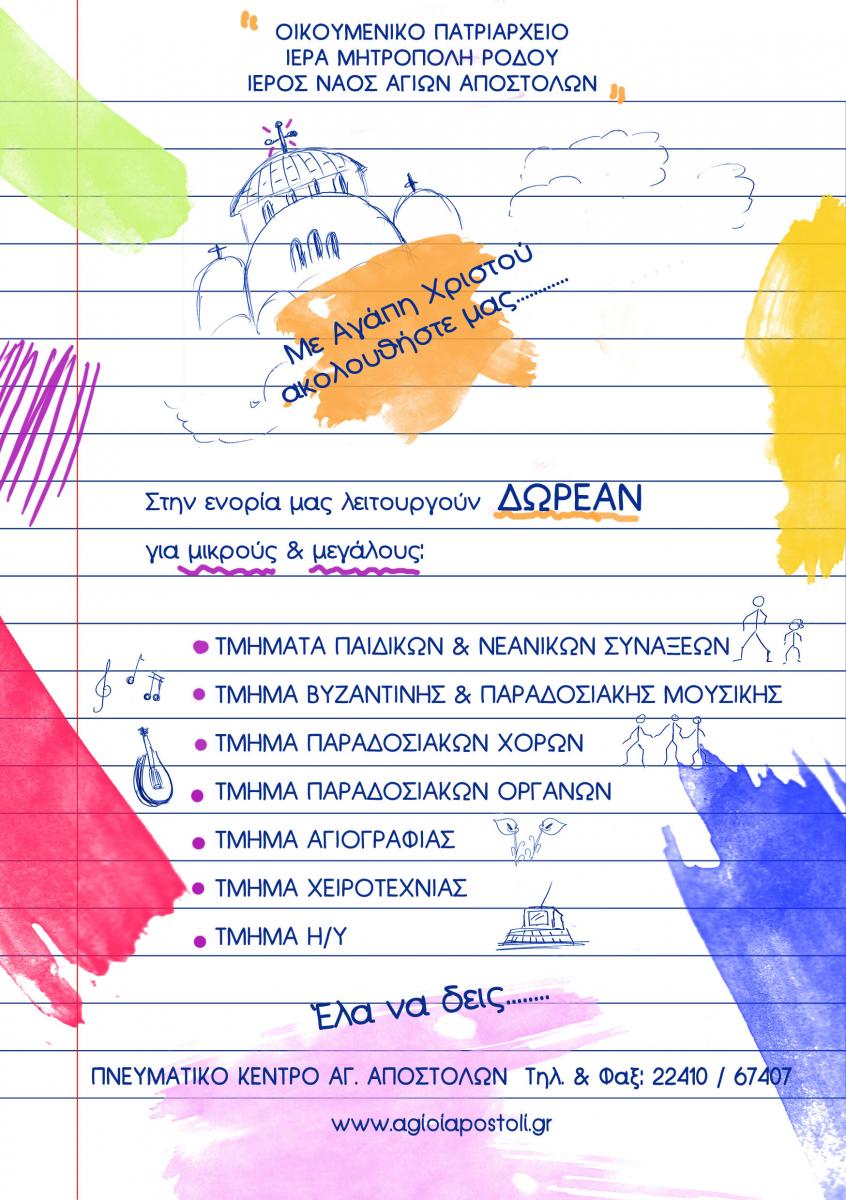 ΟΙΚΟΥΜΕΝΙΚΟ ΠΑΤΡΙΑΡΧΕΙΟ
ΙΕΡΑ ΜΗΤΡΟΠΟΛΗ ΡΟΔΟΥ
ΙΕΡΟΣ ΝΑΟΣ ΑΓΙΩΝ ΑΠΟΣΤΟΛΩΝ
Με Αγάπη Χριστού
ακολουθήστε μας...........
Στην ενορία μας λειτουργούν ΔΩΡΕΑΝ
για μικρούς & μεγάλους:
ΤΜΗΜΑΤΑ ΠΑΙΔΙΚΩΝ & ΝΕΑΝΙΚΩΝ ΣΥΝΑΞΕΩΝ
ΤΜΗΜΑ ΒΥΖΑΝΤΙΝΗΣ & ΠΑΡΑΔΟΣΙΑΚΗΣ ΜΟΥΣΙΚΗΣ
ΤΜΗΜΑ ΠΑΡΑΔΟΣΙΑΚΩΝ ΧΟΡΩΝ
ΤΜΗΜΑ ΠΑΡΑΔΟΣΙΑΚΩΝ ΟΡΓΑΝΩΝ
ΤΜΗΜΑ ΑΓΙΟΓΡΑΦΙΑΣ
ΤΜΗΜΑ ΧΕΙΡΟΤΕΧΝΙΑΣ
ΤΜΗΜΑ Η/Υ
Έλα να δεις........
ΠΝΕΥΜΑΤΙΚΟ ΚΕΝΤΡΟ ΑΓ. ΑΠΟΣΤΟΛΩΝ Τηλ. & Φαξ: 22410 / 67407
www.agioiapostoli.gr